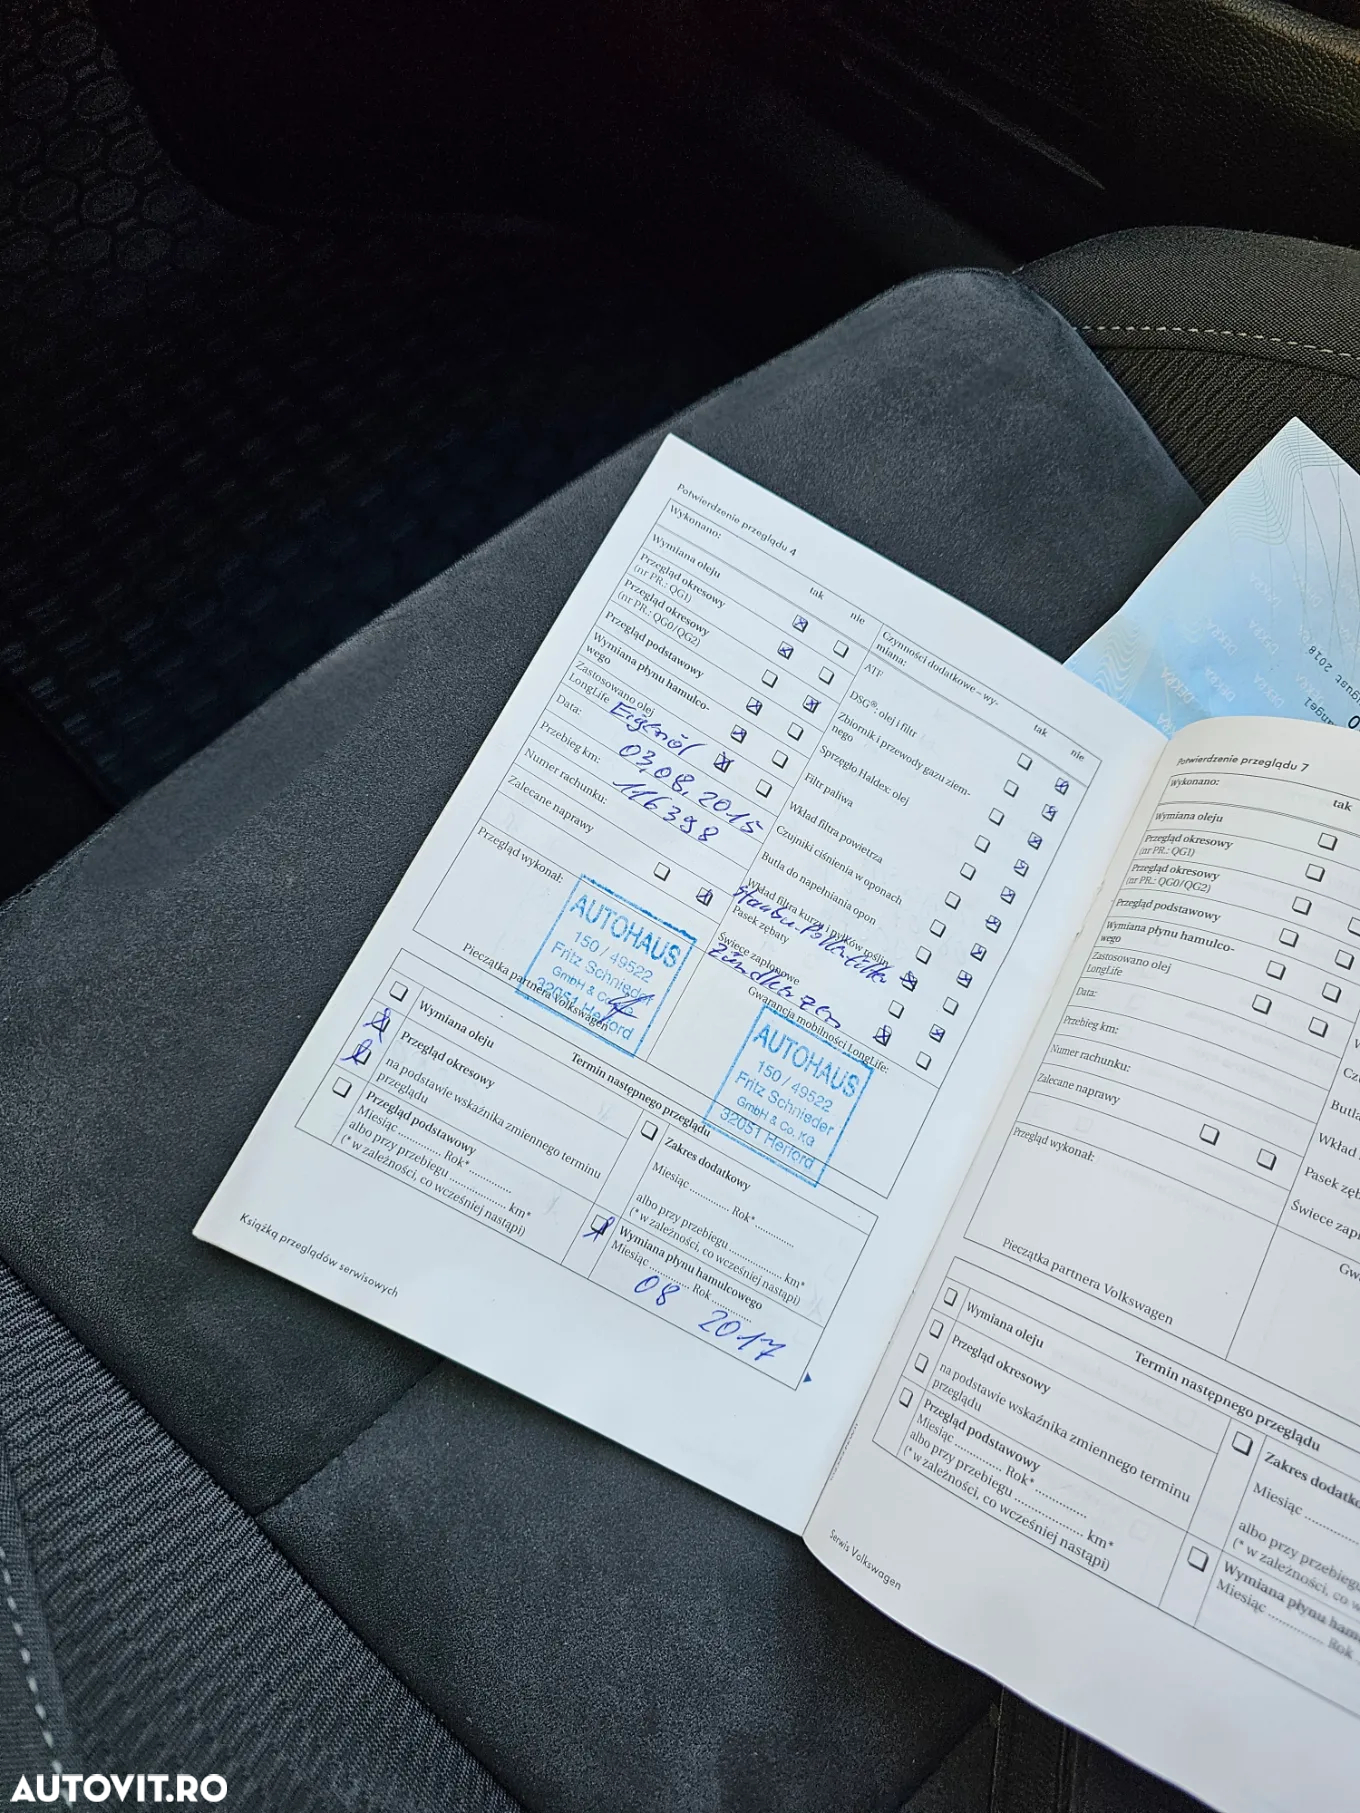 Potwierdzenie przeglądu 4
Wykonano:
tak nie
Wymiana oleju
Przegląd okresowy
(nr PR.: QG1)
Przegląd okresowy
(nr PR.: QG0/QG2)
Przegląd podstawowy
Wymiana płynu hamulco-
wego
Zastosowano olej
LongLife
Eigenöl
Data:
03.08.2015
Przebieg km:
116398
Numer rachunku:
Zalecane naprawy
Przegląd wykonał:
AUTOHAUS
150 / 49522
Fritz Schnieder
GmbH & Co. KG
32051 Herford
Pieczątka partnera Volkswagen
Czynności dodatkowe – wy-
miana:
tak nie
ATF
DSG®: olej i filtr
Zbiornik i przewody gazu ziem-
nego
Sprzęgło Haldex: olej
Filtr paliwa
Wkład filtra powietrza
Czujniki ciśnienia w oponach
Butla do napełniania opon
Wkład filtra kurzu i pyłków roślin
Staub-Pollenfilter
Pasek zębaty
Świece zapłonowe
Zündkerzen
Gwarancja mobilności LongLife:
AUTOHAUS
150 / 49522
Fritz Schnieder
GmbH & Co. KG
32051 Herford
Termin następnego przeglądu
Wymiana oleju
Przegląd okresowy
na podstawie wskaźnika zmiennego terminu
przeglądu
Przegląd podstawowy
Miesiąc ............ Rok* ............
albo przy przebiegu ............ km*
(* w zależności, co wcześniej nastąpi)
Zakres dodatkowy
Miesiąc ............ Rok* ............
albo przy przebiegu ............ km*
(* w zależności, co wcześniej nastąpi)
Wymiana płynu hamulcowego
Miesiąc ............ Rok ............
08 2017
Książka przeglądów serwisowych
Potwierdzenie przeglądu 7
Wykonano:
tak
Wymiana oleju
Przegląd okresowy
(nr PR.: QG1)
Przegląd okresowy
(nr PR.: QG0/QG2)
Przegląd podstawowy
Wymiana płynu hamulco-
wego
Zastosowano olej
LongLife
Data:
Przebieg km:
Numer rachunku:
Zalecane naprawy
Przegląd wykonał:
Pieczątka partnera Volkswagen
Butla
Wkład
Pasek zęb
Świece zapł
Gw
Termin następnego przeglądu
Wymiana oleju
Przegląd okresowy
na podstawie wskaźnika zmiennego terminu
przeglądu
Przegląd podstawowy
Miesiąc ............ Rok* ............
albo przy przebiegu ............ km*
(* w zależności, co wcześniej nastąpi)
Zakres dodatko
Miesiąc ............
albo przy przebieg
(* w zależności, co w
Wymiana płynu ham
Miesiąc ............ Rok
Serwis Volkswagen
DEKRA
2018
AUTOVIT.RO